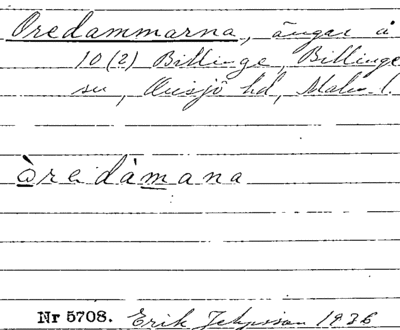 Oredammarna, ängar å
10(2) Billinge, Billinge
sn, Onsjö hd, Malm. l.
òredàmana
Nr 5708. Erik Jeppsson 1936